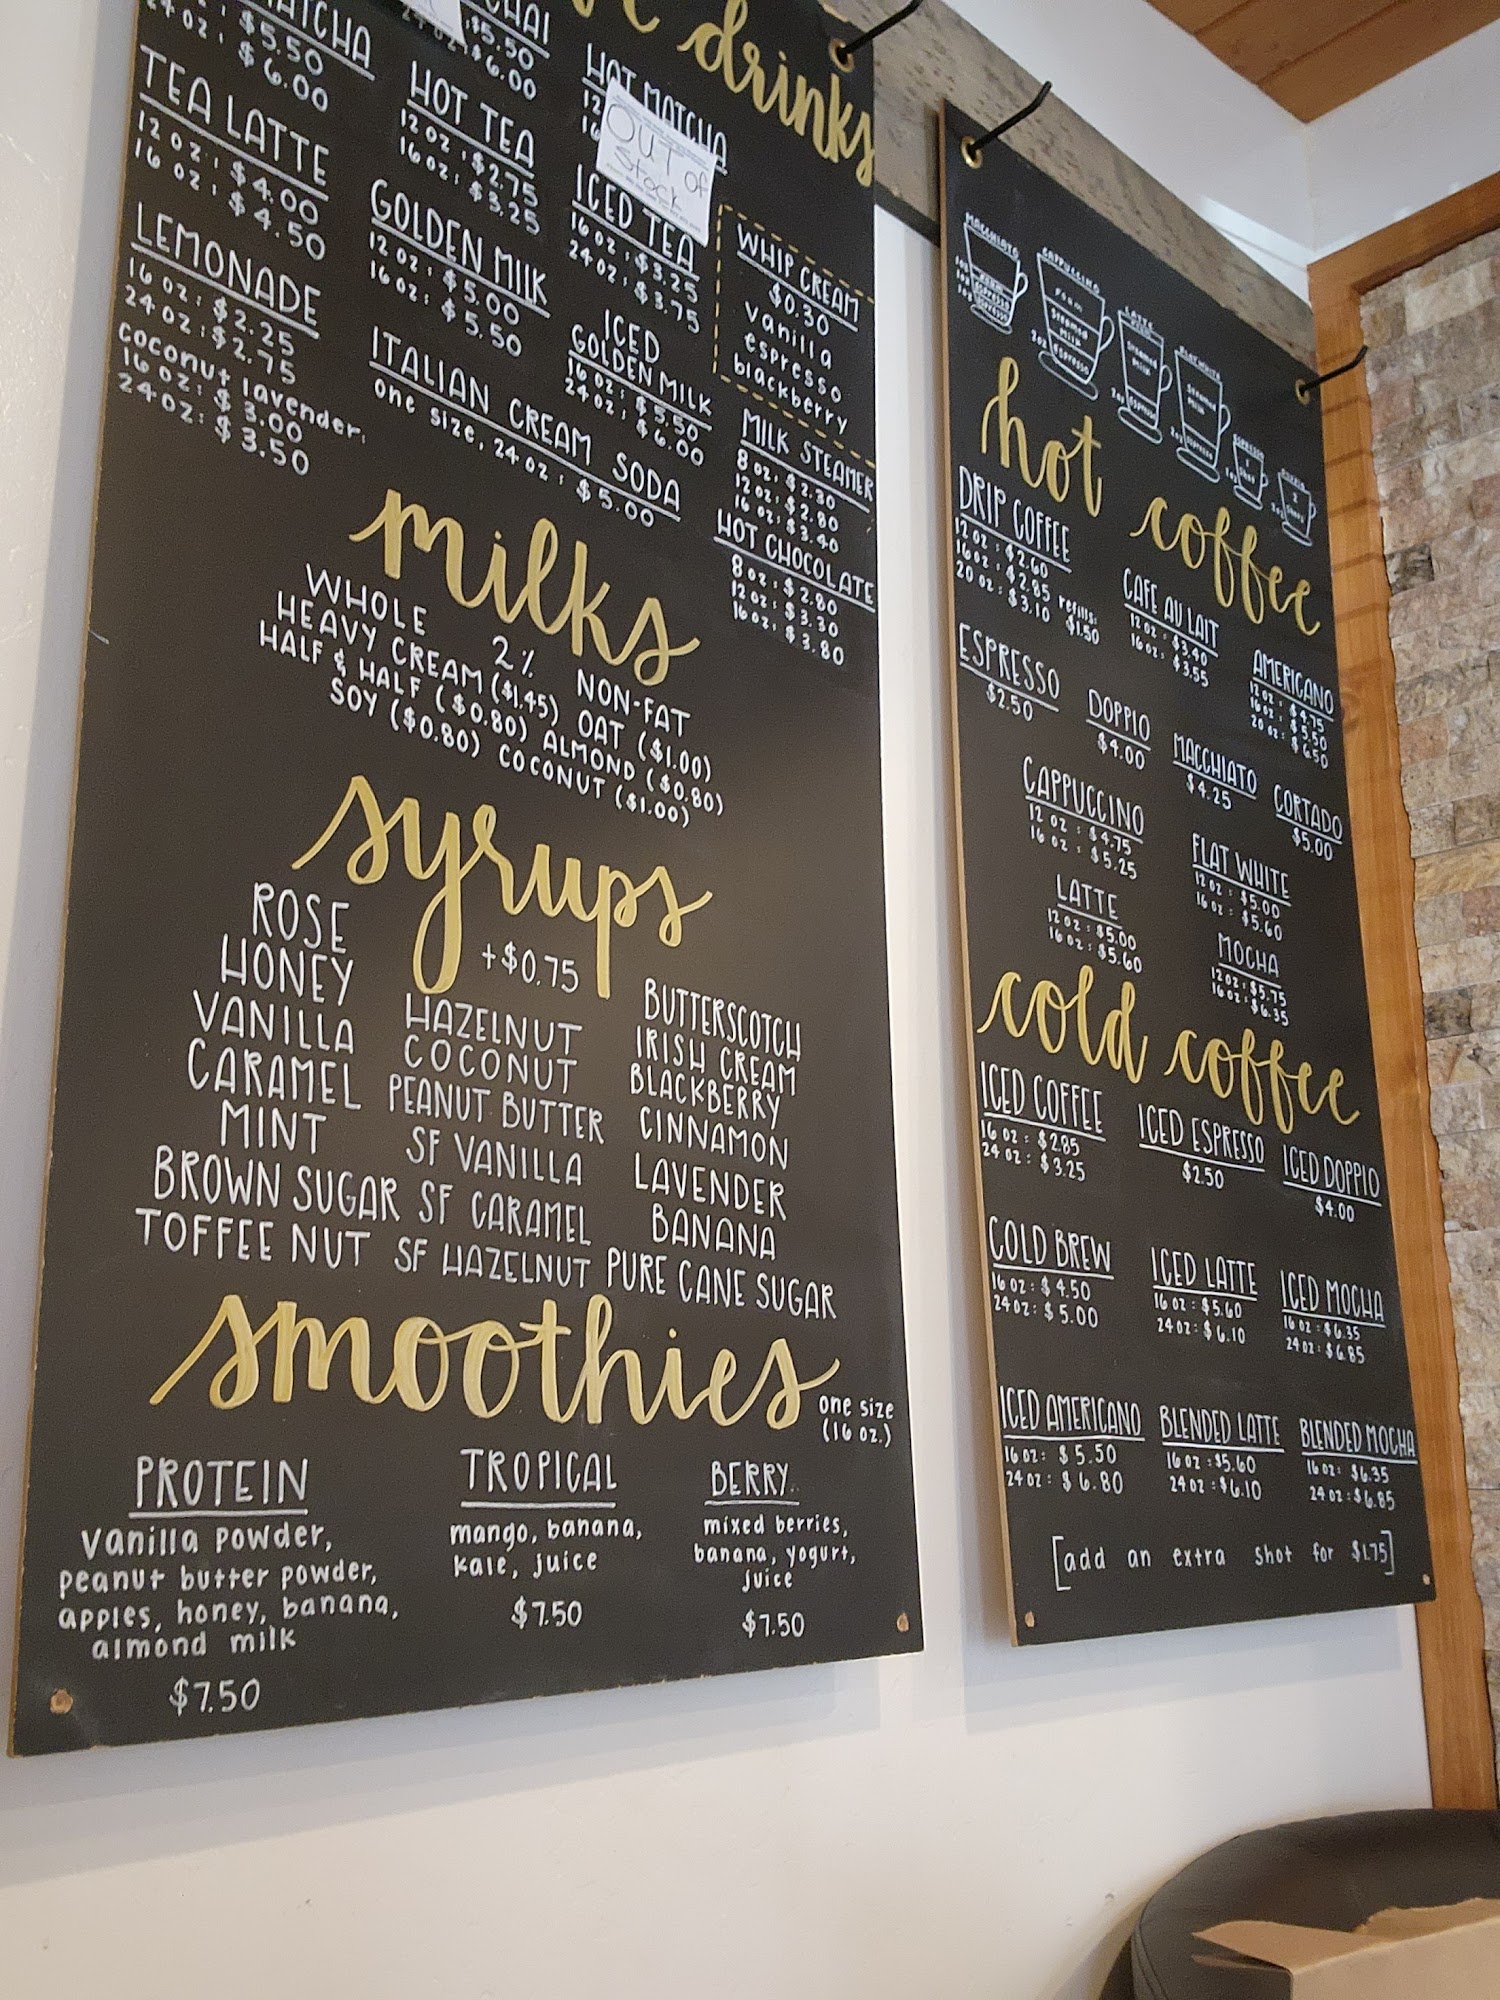 drinks
MATCHA
$5.50
24 oz: $6.00
CHAI
$5.50
24 oz: $6.00
HOT MATCHA
12
16
OUT OF
Stock
TEA LATTE
12 oz: $4.00
16 oz: $4.50
HOT TEA
12 oz: $2.75
16 oz: $3.25
ICED TEA
16 oz: $3.25
24 oz: $3.75
WHIP CREAM
$0.30
vanilla
espresso
blackberry
LEMONADE
16 oz: $2.25
24 oz: $2.75
coconut lavender:
16 oz: $3.00
24 oz: $3.50
GOLDEN MILK
12 oz: $5.00
16 oz: $5.50
ICED
GOLDEN MILK
16 oz: $5.50
24 oz: $6.00
ITALIAN CREAM SODA
one size, 24 oz: $5.00
MILK STEAMER
8 oz: $2.30
12 oz: $2.80
16 oz: $3.40
HOT CHOCOLATE
8 oz: $2.80
12 oz: $3.30
16 oz: $3.80
milks
WHOLE 2% NON-FAT
HEAVY CREAM ($1.45) OAT ($1.00)
HALF & HALF ($0.80) ALMOND ($0.80)
SOY ($0.80) COCONUT ($1.00)
syrups
+$0.75
ROSE
HONEY
VANILLA
CARAMEL
MINT
BROWN SUGAR
TOFFEE NUT
HAZELNUT
COCONUT
PEANUT BUTTER
SF VANILLA
SF CARAMEL
SF HAZELNUT
BUTTERSCOTCH
IRISH CREAM
BLACKBERRY
CINNAMON
LAVENDER
BANANA
PURE CANE SUGAR
smoothies
one size
(16 oz.)
PROTEIN
vanilla powder,
peanut butter powder,
apples, honey, banana,
almond milk
$7.50
TROPICAL
mango, banana,
kale, juice
$7.50
BERRY
mixed berries,
banana, yogurt,
juice
$7.50
MACCHIATO
FOAM
ESPRESSO
CAPPUCCINO
FOAM
STEAMED
MILK
2oz ESPRESSO
LATTE
STEAMED
MILK
2oz ESPRESSO
FLAT WHITE
STEAMED
MILK
2oz ESPRESSO
ESPRESSO
1
SHOT
DOPPIO
2
SHOTS
hot coffee
DRIP COFFEE
12 oz: $2.60
16 oz: $2.85
20 oz: $3.10
refills:
$1.50
CAFE AU LAIT
12 oz: $3.40
16 oz: $3.55
AMERICANO
12 oz: $4.75
16 oz: $5.50
20 oz: $6.50
ESPRESSO
$2.50
DOPPIO
$4.00
MACCHIATO
$4.25
CORTADO
$5.00
CAPPUCCINO
12 oz: $4.75
16 oz: $5.25
FLAT WHITE
12 oz: $5.00
16 oz: $5.60
LATTE
12 oz: $5.00
16 oz: $5.60
MOCHA
12 oz: $5.75
16 oz: $6.35
cold coffee
ICED COFFEE
16 oz: $2.85
24 oz: $3.25
ICED ESPRESSO
$2.50
ICED DOPPIO
$4.00
COLD BREW
16 oz: $4.50
24 oz: $5.00
ICED LATTE
16 oz: $5.60
24 oz: $6.10
ICED MOCHA
16 oz: $6.35
24 oz: $6.85
ICED AMERICANO
16 oz: $5.50
24 oz: $6.80
BLENDED LATTE
16 oz: $5.60
24 oz: $6.10
BLENDED MOCHA
16 oz: $6.35
24 oz: $6.85
[add an extra shot for $1.75]